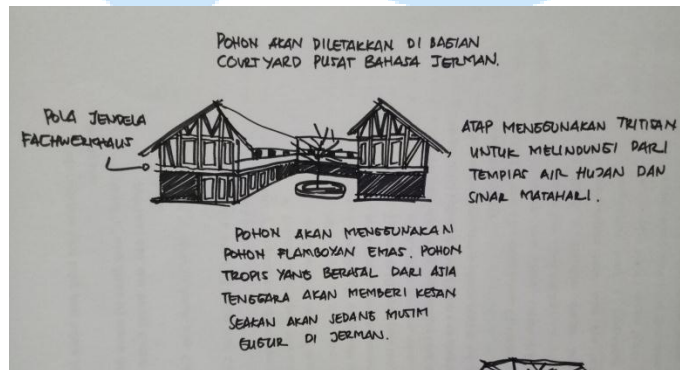 POHON AKAN DILETAKKAN DI BAGIAN
COURTYARD PUSAT BAHASA JERMAN.
POLA JENDELA
FACHWERKHAUS
ATAP MENGGUNAKAN TRITISAN
UNTUK MELINDUNGI DARI
TEMPIAS AIR HUJAN DAN
SINAR MATAHARI.
POHON AKAN MENGGUNAKAN
POHON FLAMBOYAN EMAS. POHON
TROPIS YANG BERASAL DARI ASIA
TENGGARA AKAN MEMBERI KESAN
SEAKAN AKAN SEDANG MUSIM
GUGUR DI JERMAN.